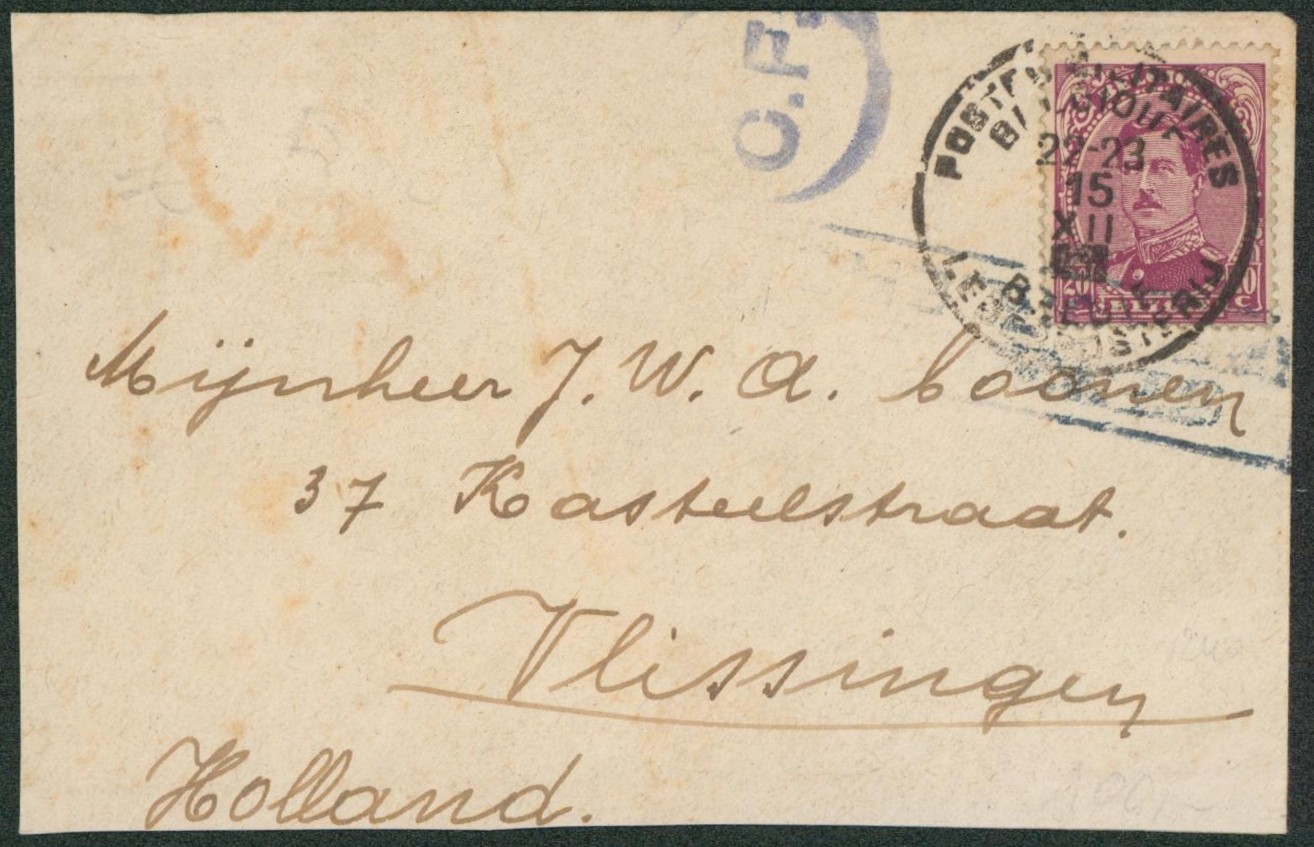 C.F.
POSTES MILITAIRES
BELGIQUE
22-23
15
XII
BELGIE
LEGERPOSTERIJ
20 C
Mijnheer J. W. A. Coonen
37 Kasteelstraat.
Vlissingen
Holland.